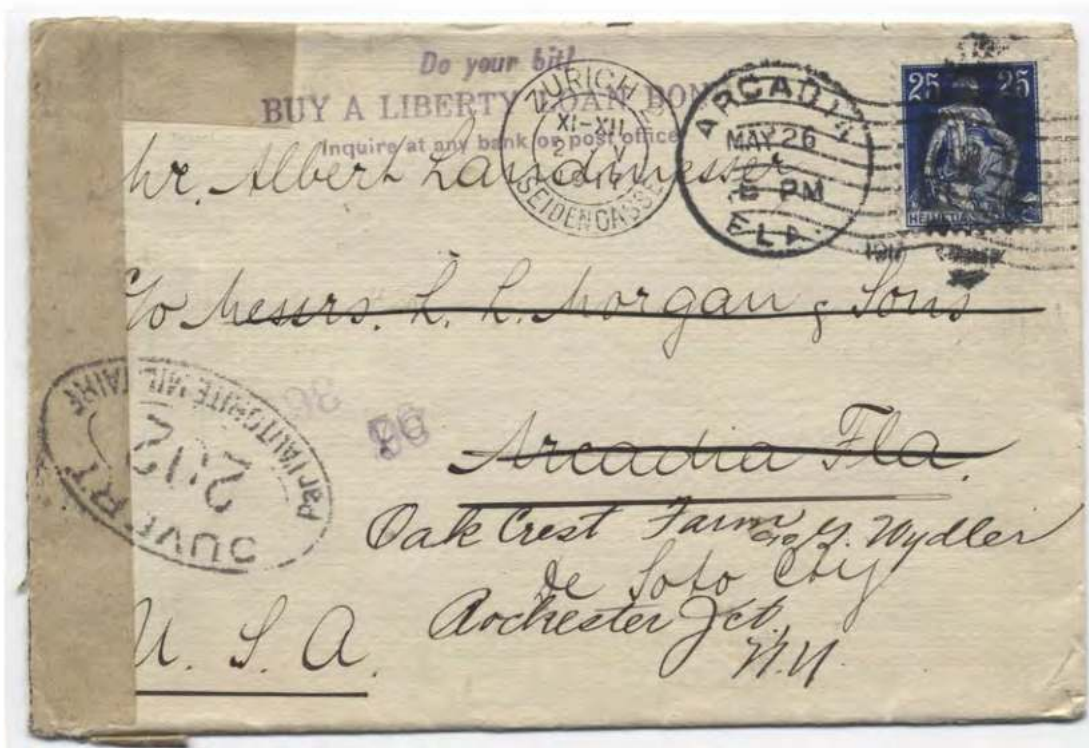 Do your bit!
BUY A LIBERTY LOAN BON
Inquire at any bank or post office
ZURICH
XI-XII
SEIDENGASSE
ARCADIA
MAY 26
PM
FLA
1917
25 25
HELVETIA
Mr. Albert Landmesser
c/o Messrs. L. L. Morgan & Sons
Arcadia Fla.
Oak Crest Farm c/o G. Wydler
de Soto City
Rochester Jct.
N.Y.
U. S. A.
OUVERT
par l'AUTORITÉ MILITAIRE
212